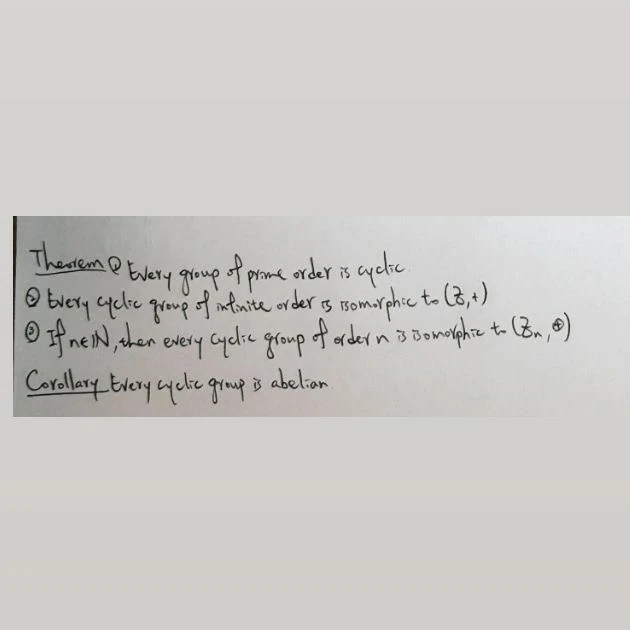 Theorem ① Every group of prime order is cyclic.
② Every cyclic group of infinite order is isomorphic to (ℤ,+)
③ If n∈ℕ, then every cyclic group of order n is isomorphic to (ℤₙ,⊕)
Corollary Every cyclic group is abelian.